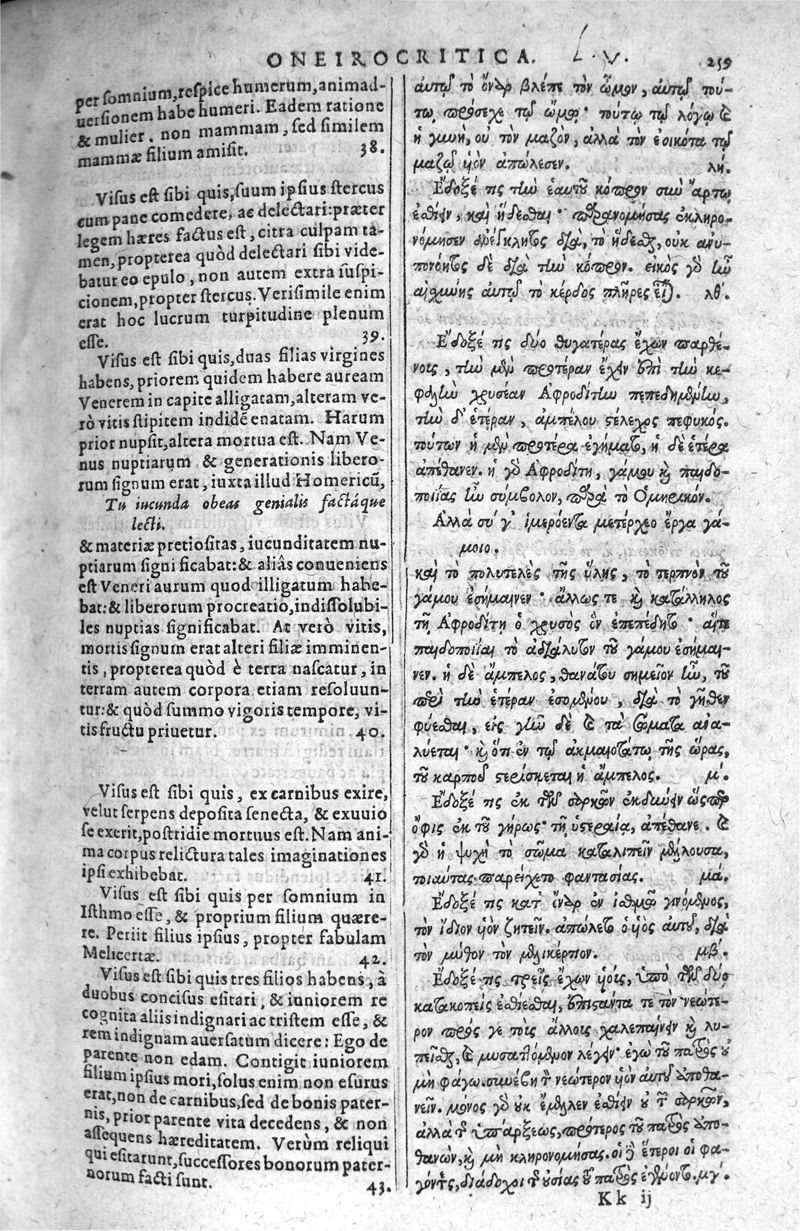 ONEIROCRITICA. L. V. 259
per somnium, respice humerum, animad-
uersionem habe humeri. Eadem ratione
& mulier, non mammam, sed similem
mammæ filium amisit. 38.
Visus est sibi quis, suum ipsius stercus
cum pane comedere, ac delectari: præter
legem hæres factus est, citra culpam ta-
men, propterea quòd delectari sibi vide-
batur eo epulo, non autem extra suspi-
cionem, propter stercus. Verisimile enim
erat hoc lucrum turpitudine plenum
esse. 39.
Visus est sibi quis, duas filias virgines
habens, priorem quidem habere auream
Venerem in capite alligatam, alteram ve-
rò vitis stipitem indidẽ enatam. Harum
prior nupsit, altera mortua est. Nam Ve-
nus nuptiarum & generationis libero-
rum signum erat, iuxta illud Homericũ,
Tu iucunda obeas genialis factáque
lecti.
& materiæ pretiositas, iucunditatem nu-
ptiarum significabat: & aliâs conueniens
est Veneri aurum quod illigatum habe-
bat: & liberorum procreatio, indissolubi-
les nuptias significabat. At verò vitis,
mortis signum erat alteri filiæ imminen-
tis, propterea quòd è terra nascatur, in
terram autem corpora etiam resoluun-
tur: & quòd summo vigoris tempore, vi-
tis fructu priuetur. 40.
Visus est sibi quis, ex carnibus exire,
velut serpens deposita senecta, & exuuio
se exerit, postridie mortuus est. Nam ani-
ma corpus relictura tales imaginationes
ipsi exhibebat. 41.
Visus est sibi quis per somnium in
Isthmo esse, & proprium filium quære-
re. Periit filius ipsius, propter fabulam
Melicertæ. 42.
Visus est sibi quis tres filios habens, à
duobus concisus esitari, & iuniorem re
cognita aliis indignari ac tristem esse, &
rem indignam auersatum dicere: Ego de
parente non edam. Contigit iuniorem
filium ipsius mori, solus enim non esurus
erat, non de carnibus, sed de bonis pater-
nis, prior parente vita decedens, & non
assequens hæreditatem. Verùm reliqui
qui esitarunt, successores bonorum pater-
norum facti sunt. 43.
αὐτῷ τὸ ὄναρ βλέπε τὸν ὦμον, αὐτῷ τού-
τῳ πρόσεχε τῷ ὤμῳ· τούτῳ τῷ λόγῳ καὶ
ἡ γυνὴ, οὐ τὸν μαζὸν, ἀλλὰ τὸν ἐοικότα τῷ
μαζῷ υἱὸν ἀπώλεσεν. λή.
Ἔδοξέ τις τὴν ἑαυτοῦ κόπρον σὺν ἄρτῳ
ἐσθίειν, καὶ ἥδεσθαι· παρανομήσας ἐκληρο-
νόμησεν ἀνέγκλητος διὰ, τὸ ἥδεσθαι, οὐκ ἀνυ-
πονόητος δὲ διὰ τὴν κόπρον. εἰκὸς γὰρ ἦν
αἰσχύνης αὐτῷ τὸ κέρδος πλῆρες εἶναι. λθ.
Ἔδοξέ τις δύο θυγατέρας ἔχων παρθέ-
νοις, τὴν μὲν προτέραν ἔχειν ἐπὶ τὴν κε-
φαλὴν χρυσέαν Ἀφροδίτην πεπεδημένην,
τὴν δ᾽ ἑτέραν, ἀμπέλου στέλεχος πεφυκός.
τούτων ἡ μὲν προτέρα ἐγήματο, ἡ δὲ ἑτέρα
ἀπέθανεν. ἡ γὰρ Ἀφροδίτη, γάμου καὶ παιδο-
ποιΐας ἦν σύμβολον, παρὰ τὸ Ὁμηρικόν.
Ἀλλὰ σύ γ᾽ ἱμερόεντα μετέρχεο ἔργα γά-
μοιο.
καὶ τὸ πολυτελὲς τῆς ὕλης, τὸ τερπνὸν τοῦ
γάμου ἐσήμαινεν· ἄλλως τε καὶ κατάλληλος
τῇ Ἀφροδίτῃ ὁ χρυσὸς ὃν ἐπεπέδητο·
παιδοποιΐαι τὸ ἀδιάλυτον τοῦ γάμου ἐσήμαι-
νεν. ἡ δὲ ἄμπελος, θανάτου σημεῖον ἦν, τοῦ
περὶ τὴν ἑτέραν ἐσομένου, διὰ τὸ γῆθεν
φύεσθαι, εἰς γῆν δὲ καὶ τὰ σώματα ἀνα-
λύεται· καὶ ὅτι ἐν τῷ ἀκμαιοτάτῳ τῆς ὥρας,
τοῦ καρποῦ στερίσκεται ἡ ἄμπελος. μ.
Ἔδοξέ τις ἐκ τῶν σαρκῶν ἐκδιύειν ὥσπερ
ὄφις ἐκ τοῦ γήρως· τῇ ὑστεραίᾳ, ἀπέθανε. καὶ
γὰρ ἡ ψυχὴ τὸ σῶμα καταλιπεῖν μέλλουσα,
τοιαύτας παρείχετο φαντασίας. μά.
Ἔδοξέ τις κατ᾽ ὄναρ ἐν ἰσθμῷ γινόμενος,
τὸν ἴδιον υἱὸν ζητεῖν. ἀπώλετο ὁ υἱὸς αὐτοῦ, διὰ
τὸν μῦθον τὸν μελικέρτιον. μβ.
Ἔδοξέ τις τρεῖς ἔχων υἱοὺς, ὑπὸ τῶν δύο
κατακοπεὶς ἐσθίεσθαι, ἐπιστάντα τε τὸν νεώτε-
ρον πρός γε τοῖς ἄλλοις χαλεπαίνειν καὶ λυ-
πεῖσθαι, καὶ μυσαττόμενον λέγειν· ἐγὼ τοῦ πατρὸς οὐ
μὴ φάγω. συνέβη τὸν νεώτερον υἱὸν αὐτοῦ ἀποθα-
νεῖν. μόνος γὰρ οὐκ ἔμελλεν ἐσθίειν οὐ τῶν σαρκῶν,
ἀλλὰ τῆς ὑπάρξεως, πρότερος τοῦ πατρὸς ἀπο-
θανὼν, καὶ μὴ κληρονομήσας. οἱ δὲ ἕτεροι οἱ φα-
γόντες, διάδοχοι τῆς οὐσίας τοῦ πατρὸς ἐγένοντο. μγ.
Kk ij